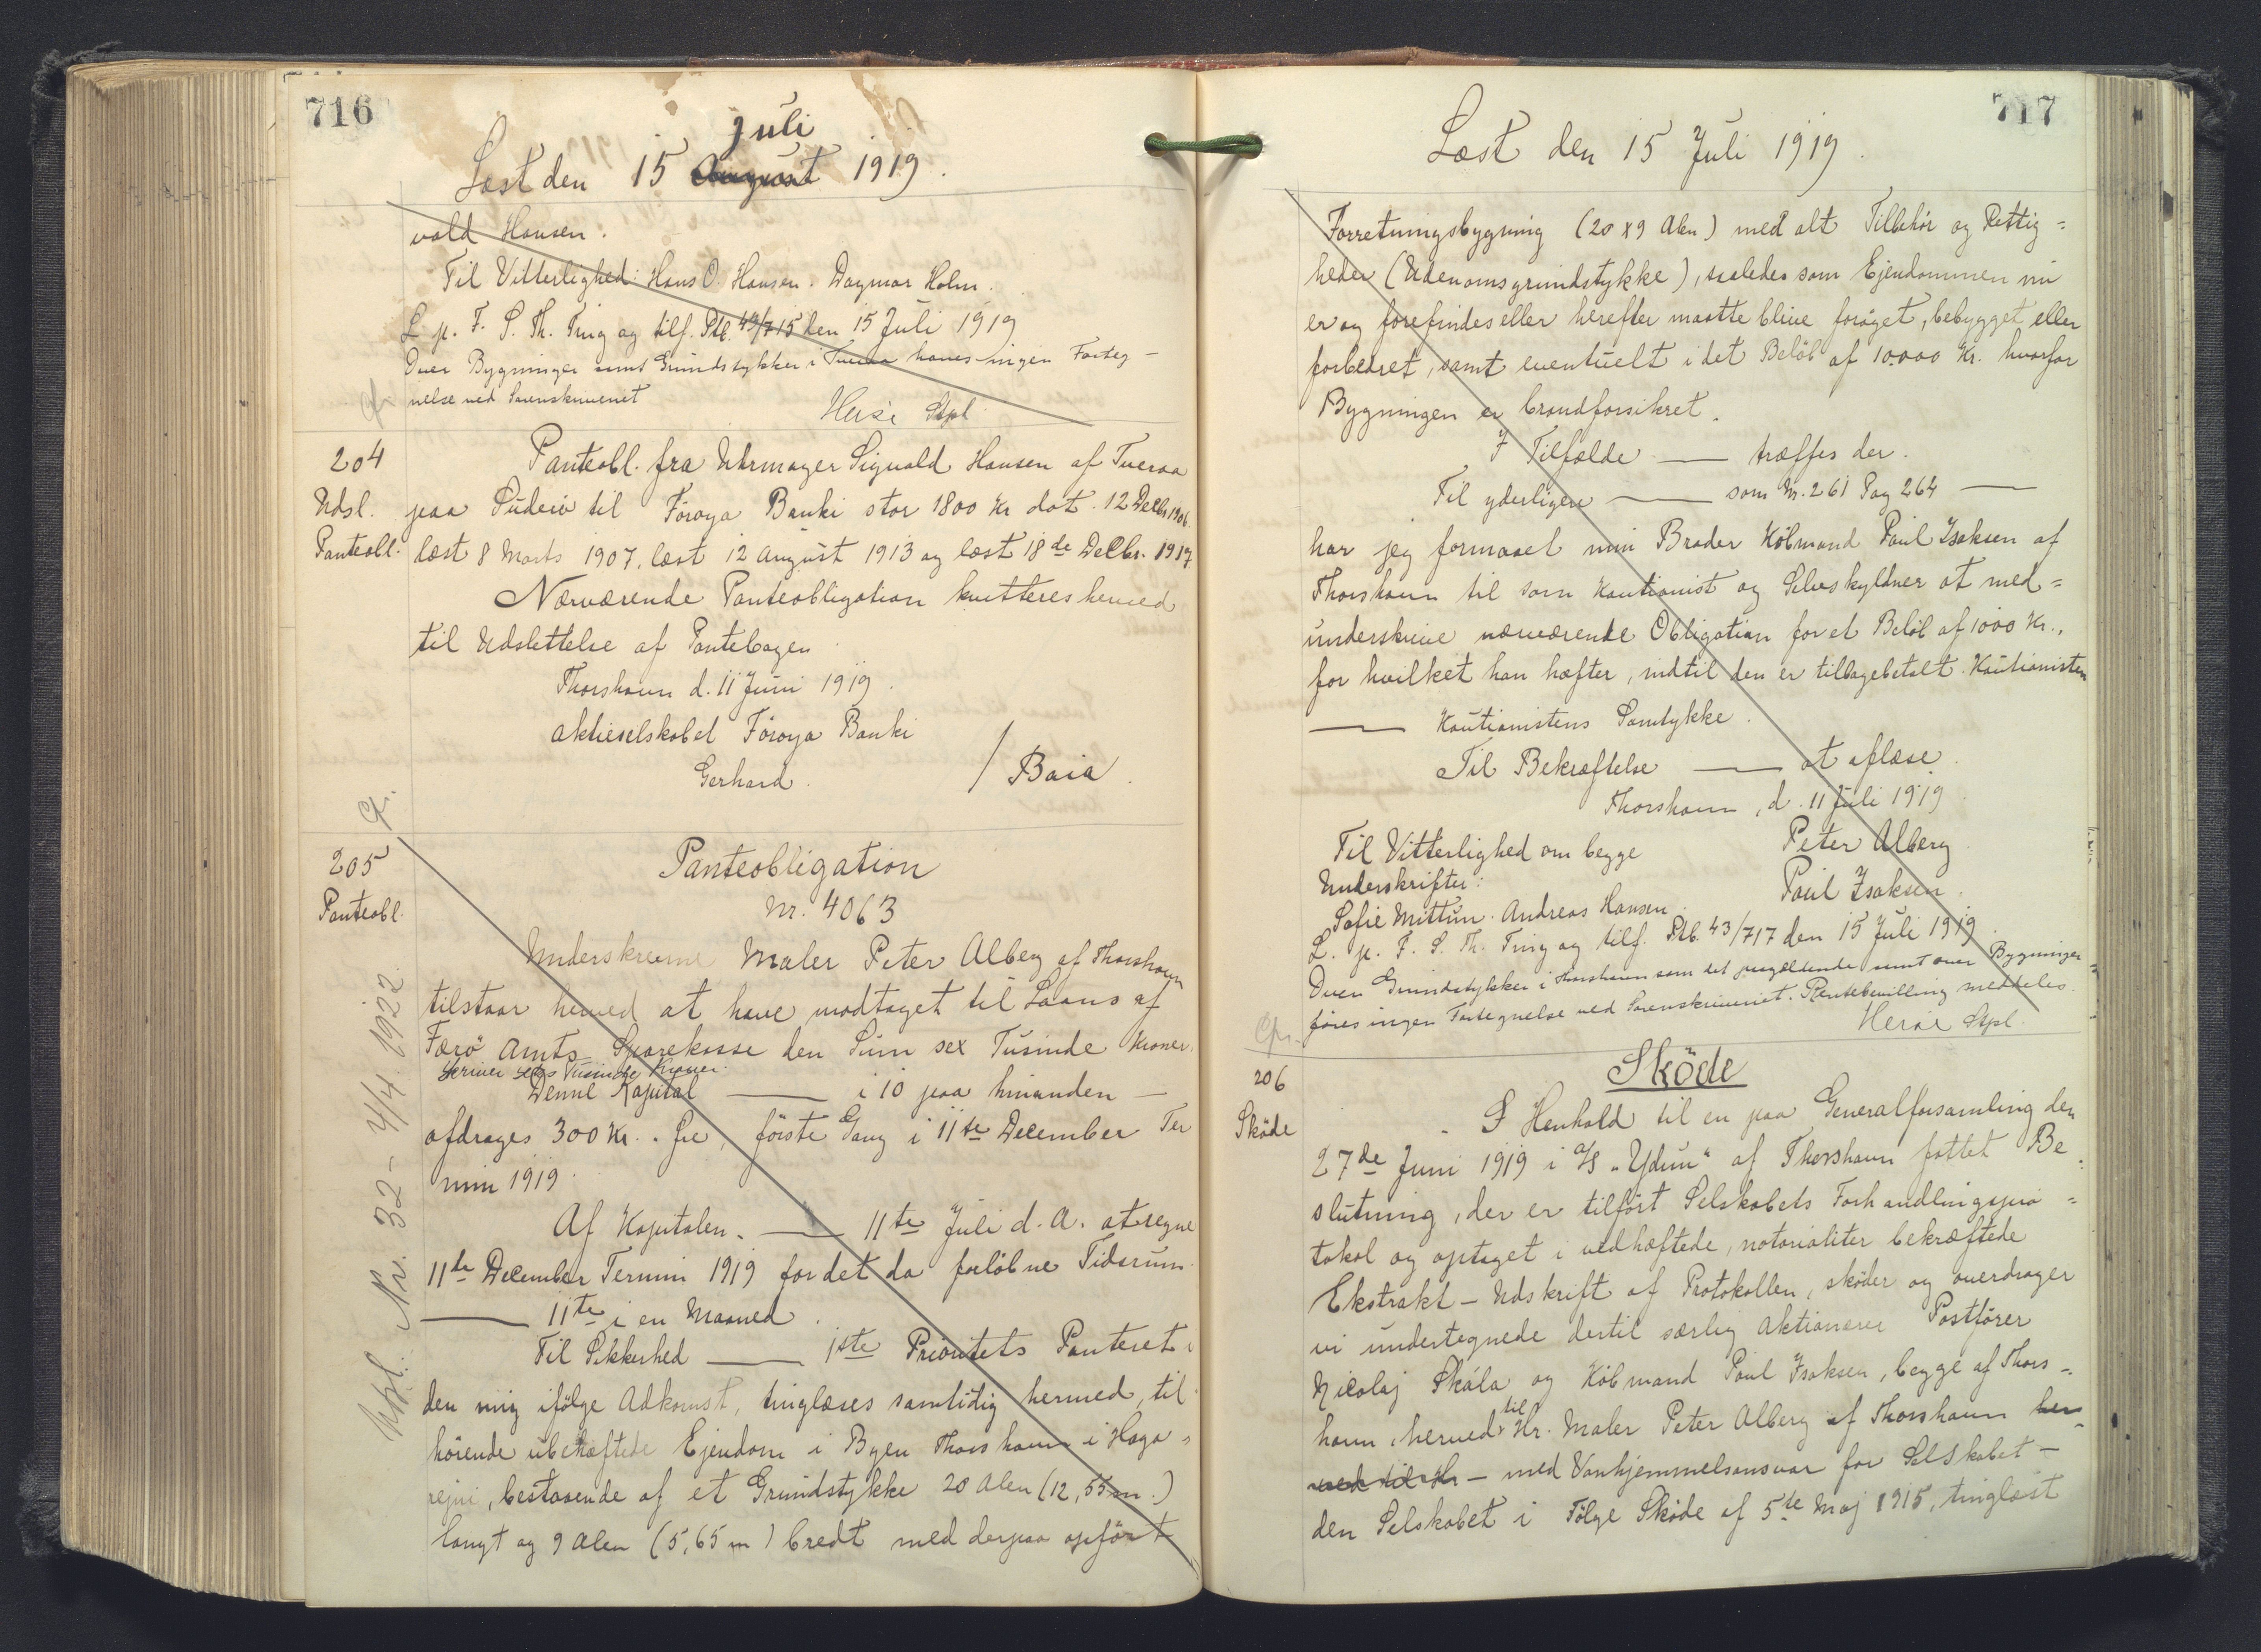 716
Læst den 15 August Juli 1919.
vald Hansen.
Til Vitterlighed: Hans O. Hansen. Dagmar Holm.
L. p. F. S. Th. Ting og tilf. Ptb. 43/715 den 15 Juli 1919
Over Bygninger samt Grundstykker i Tveraa haves ingen Forteg-
nelse ved Sorenskriveriet
Heise Stpl
204
Udsl.
Panteobl.
Panteobl. fra Uhrmager Sigvald Hansen af Tveraa
paa Suderö til Föroya Banki stor 1800 Kr dat. 12 Decbr. 1906.
læst 8 Marts 1907, læst 12 August 1913 og læst 18de Decbr. 1917
Nærværende Panteobligation kvitteres herved
til Udslettelse af Pantebogen
Thorshavn d. 11 Juni 1919.
Aktieselskabet Föroya Banki
Gerhard / Baia.
205
Panteobl.
Udsl. Nr. 32 - 4/4. 1922.
Panteobligation
Nr. 4063
Underskrevne Maler Peter Alberg af Thorshavn
tilstaar herved at have modtaget til Laans af
Færö Amts Sparekasse den Sum sex Tusinde Kroner
skriver seks Tusinde Kroner.
Denne Kapital —— i 10 paa hinanden —
afdrages 300 Kr. . fre, förste Gang i 11te December Ter
min 1919.
Af Kapitalen. —— 11te Juli d. A. at regne
11te December Termin 1919 for det da forlöbne Tidsrum.
—— 11te i en Maaned.
Til Sikkerhed —— 1ste Prioritets Panteret i
den mig ifölge Adkomst, tinglæses samtidig hermed, til
hörende ubehæftede Ejendom i Byen Thorshavn i Haga-
rejni, bestaaende af et Grundstykke 20 Alen (12,55 m.)
langt og 9 Alen (5,65 m) bredt med derpaa opfört
717
Læst den 15 Juli 1919.
Forretningsbygning (20 x 9 Alen) med alt Tilbehör og Rettig=
heder (Udenomsgrundstykke), saaledes som Ejendommen nu
er og forefindes eller herefter maatte blive foröget, bebygget eller
forbedret, samt eventuelt i det Belöb af 10000 Kr. hvorfor
Bygningen er brandforsikret.
I Tilfælde —— træffes der.
Til yderligere —— som Nr. 261 Pag 264 ——
har jeg formaaet min Broder Köbmand Poul Isaksen af
Thorshavn til som Kautionist og Selvskyldner at med=
underskrive nærværende Obligation for et Belöb af 1000 Kr.,
for hvilket han hæfter, indtil den er tilbagebetalt. Kautionisten
—— Kautionistens Samtykke.
Til Bekræftelse —— at aflæse
Thorshavn, d. 11 Juli 1919
Til Vitterlighed om begge
Underskrifter:
Peter Alberg
Poul Isaksen.
Sofie Mittun. Andreas Hansen.
L. p. F. S. Th. Ting og tilf. Ptb. 43/717 den 15 Juli 1919.
Over Grundstykker i Thorshavn som det paagældende samt over Bygninger
föres ingen Fortegnelse ved Sorenskriveriet. Rentebevilling meddeles.
Heise Stpl.
206
Sköde
Sköde
I Henhold til en paa Generalforsamling den
27de Juni 1919 i A/S "Ydun" af Thorshavn fattet Be
slutning, der er tilfört Selskabets Forhandlingspro=
tokol og optaget i vedhæftede, notorialiter bekræftede
Ekstrakt-Udskrift af Protokollen, sköder og overdrager
vi undertegnede dertil særlig Aktionærer Postförer
Nicolaj Skála og Köbmand Poul Isaksen, begge af Thors-
havn, herved til Hr. Maler Peter Alberg af Thorshavn her-
ved til Hr - med Vanhjemmelsansvar for Selskabet -
den Selskabet i Fölge Sköde af 5te Maj 1915, tinglæst